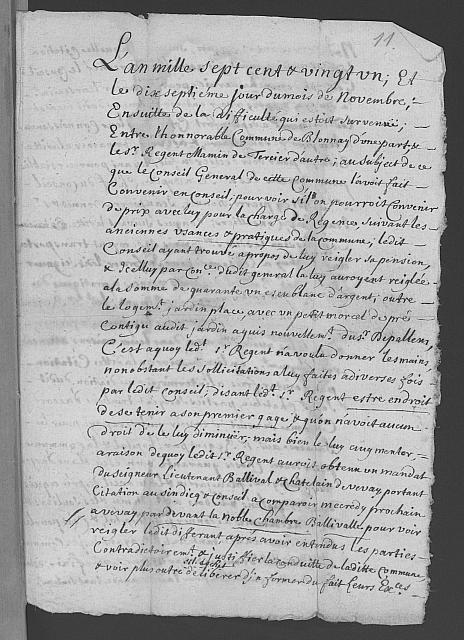 11.
L'an mille sept cent & vingt vn; Et
le dix septiéme jour du mois de Novembre,
Ensuitte de la difficulté qui estoit survenüe;
Entre l'honnorable Commune de Blonnay d'une part, &
le Sr. Regent Mamin de Tercier d'autre; au subject de ce
que le Conseil General de cette Commune l'avoit fait
Convenir en Conseil; pour voir s'il on pourroit Convenir
de prix avec luy pour la charge de Regence suivant les
anciennes vsances & pratiques de la commune; ledit
Conseil ayant trouvé a propos de luy reigler sa pension,
& Icelluy par dudit general la luy auroyent reiglée
a la somme de quarante vn escu blanc d'argent; outre
le logemt. jardin place avec un petit morcel de prés
Contigu audit jardin aquis nouvellemt. du Sr. Depallens,
C'est a quoy ledt. Sr. Regent na voulu donner les mains,
nonobstant les sollicitations a luy faites a diverses fois
par ledit Conseil; disant ledt. Sr. Regent estre en droit
de se tenir a son premier gage, & qu'on n'avoit aucun
droit de le luy diminuer, mais bien le luy augmenter,
a raison dequoy ledit Sr. Regent auroit obtenu un mandat
du seigneur Lieutenant Ballival & Chatelain de vevay portant
Citation au sindicq & Conseil a comparoir mecredy prochain
a vevay par devant la noble Chambre Ballivalle pour voir
reigler ledit differant apres avoir entendus les parties
Contradictoiremt. & justiffier la conduitte de laditte Commune
& voir plus outre deliberer d'en former du fait leurs Exces